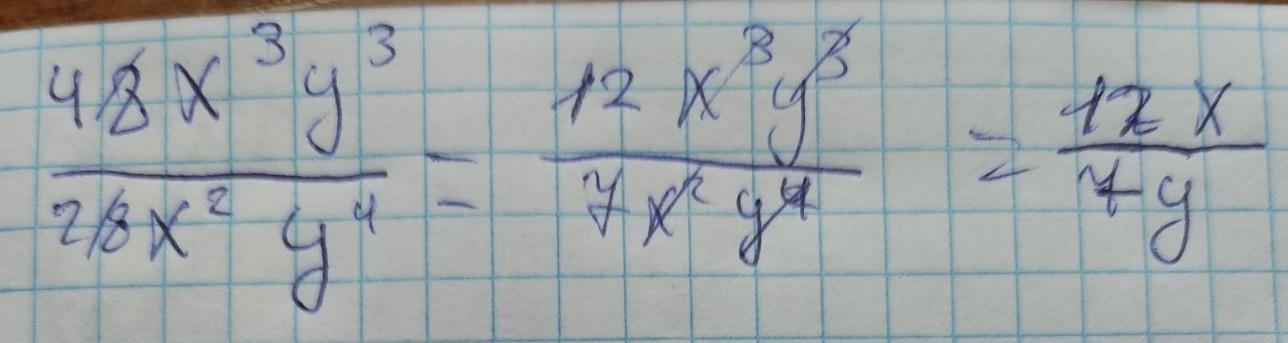 48x³y³ / 28x² y⁴ = 12x³y³ / 7x²y⁴ = 12x / 7y